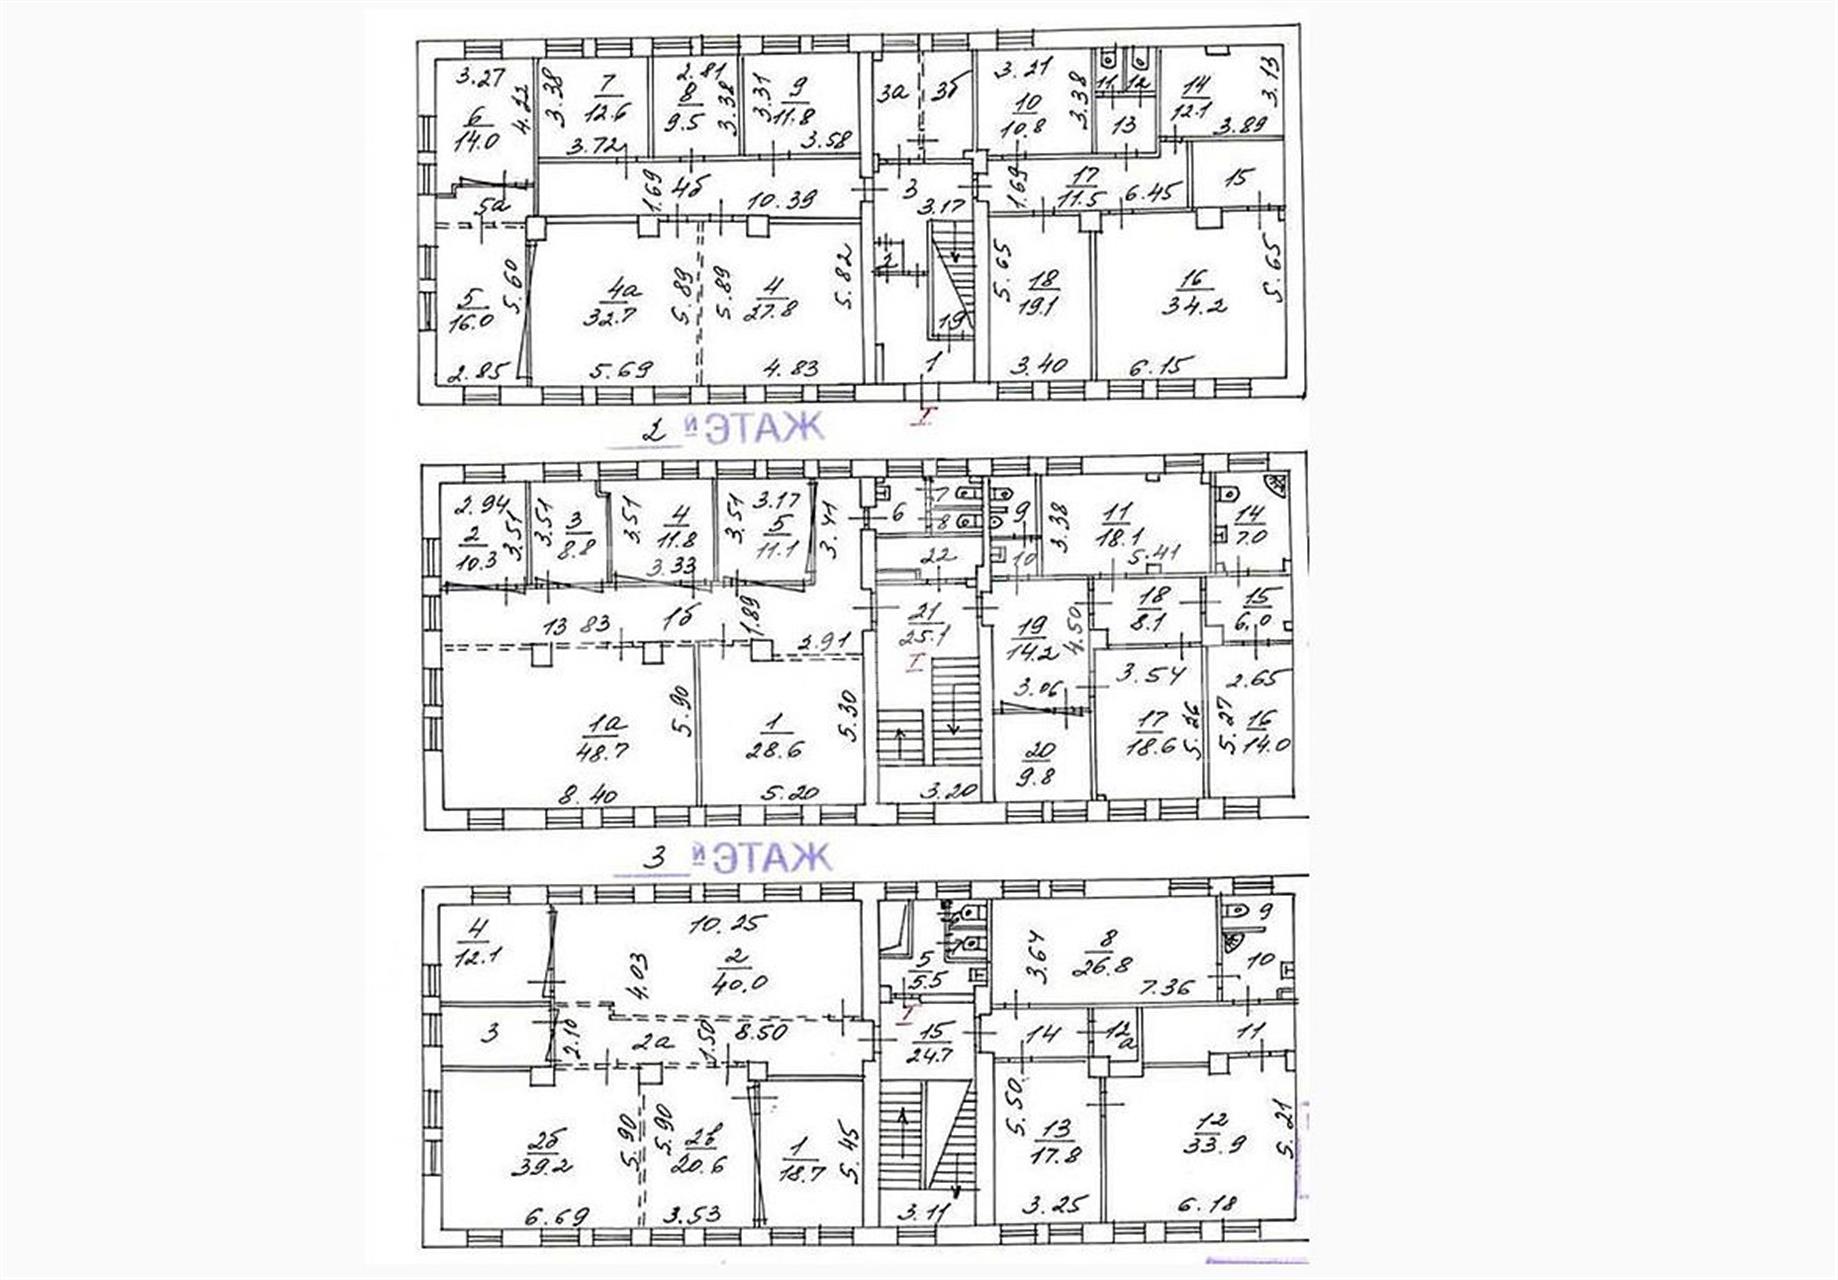 3.27
4.22
6
14.0
3.38
7
12.6
3.72
2.81
8
9.5
3.38
3.31
9
11.8
3.58
3а
3б
3.21
10
10.8
3.38
11
12
13
14
12.1
3.13
3.89
15
5а
1.69
4б
10.39
3
3.17
1.69
17
11.5
6.45
5
16.0
5.60
2.85
4а
32.7
5.89
5.69
5.89
4
27.8
5.82
4.83
2
19
1
I
5.65
18
19.1
3.40
16
34.2
5.65
6.15
2 й ЭТАЖ
2.94
2
10.3
3.51
3.51
3
8.8
3.51
4
11.8
3.33
3.51
3.17
5
11.1
3.41
6
7
8
22
9
10
3.38
11
18.1
5.41
14
7.0
13 83
1б
1.89
2.91
21
25.1
I
19
14.2
4.50
3.06
18
8.1
15
6.0
1а
48.7
5.90
8.40
1
28.6
5.30
5.20
3.20
20
9.8
3.54
17
18.6
5.26
2.65
5.27
16
14.0
3 й ЭТАЖ
4
12.1
10.25
4.03
2
40.0
5
5.5
7
3.64
8
26.8
7.36
9
10
3
2.10
2а
1.50
8.50
I
15
24.7
14
12а
11
2б
39.2
5.90
6.69
5.90
2в
20.6
3.53
1
18.7
5.45
3.11
5.50
13
17.8
3.25
12
33.9
5.21
6.18